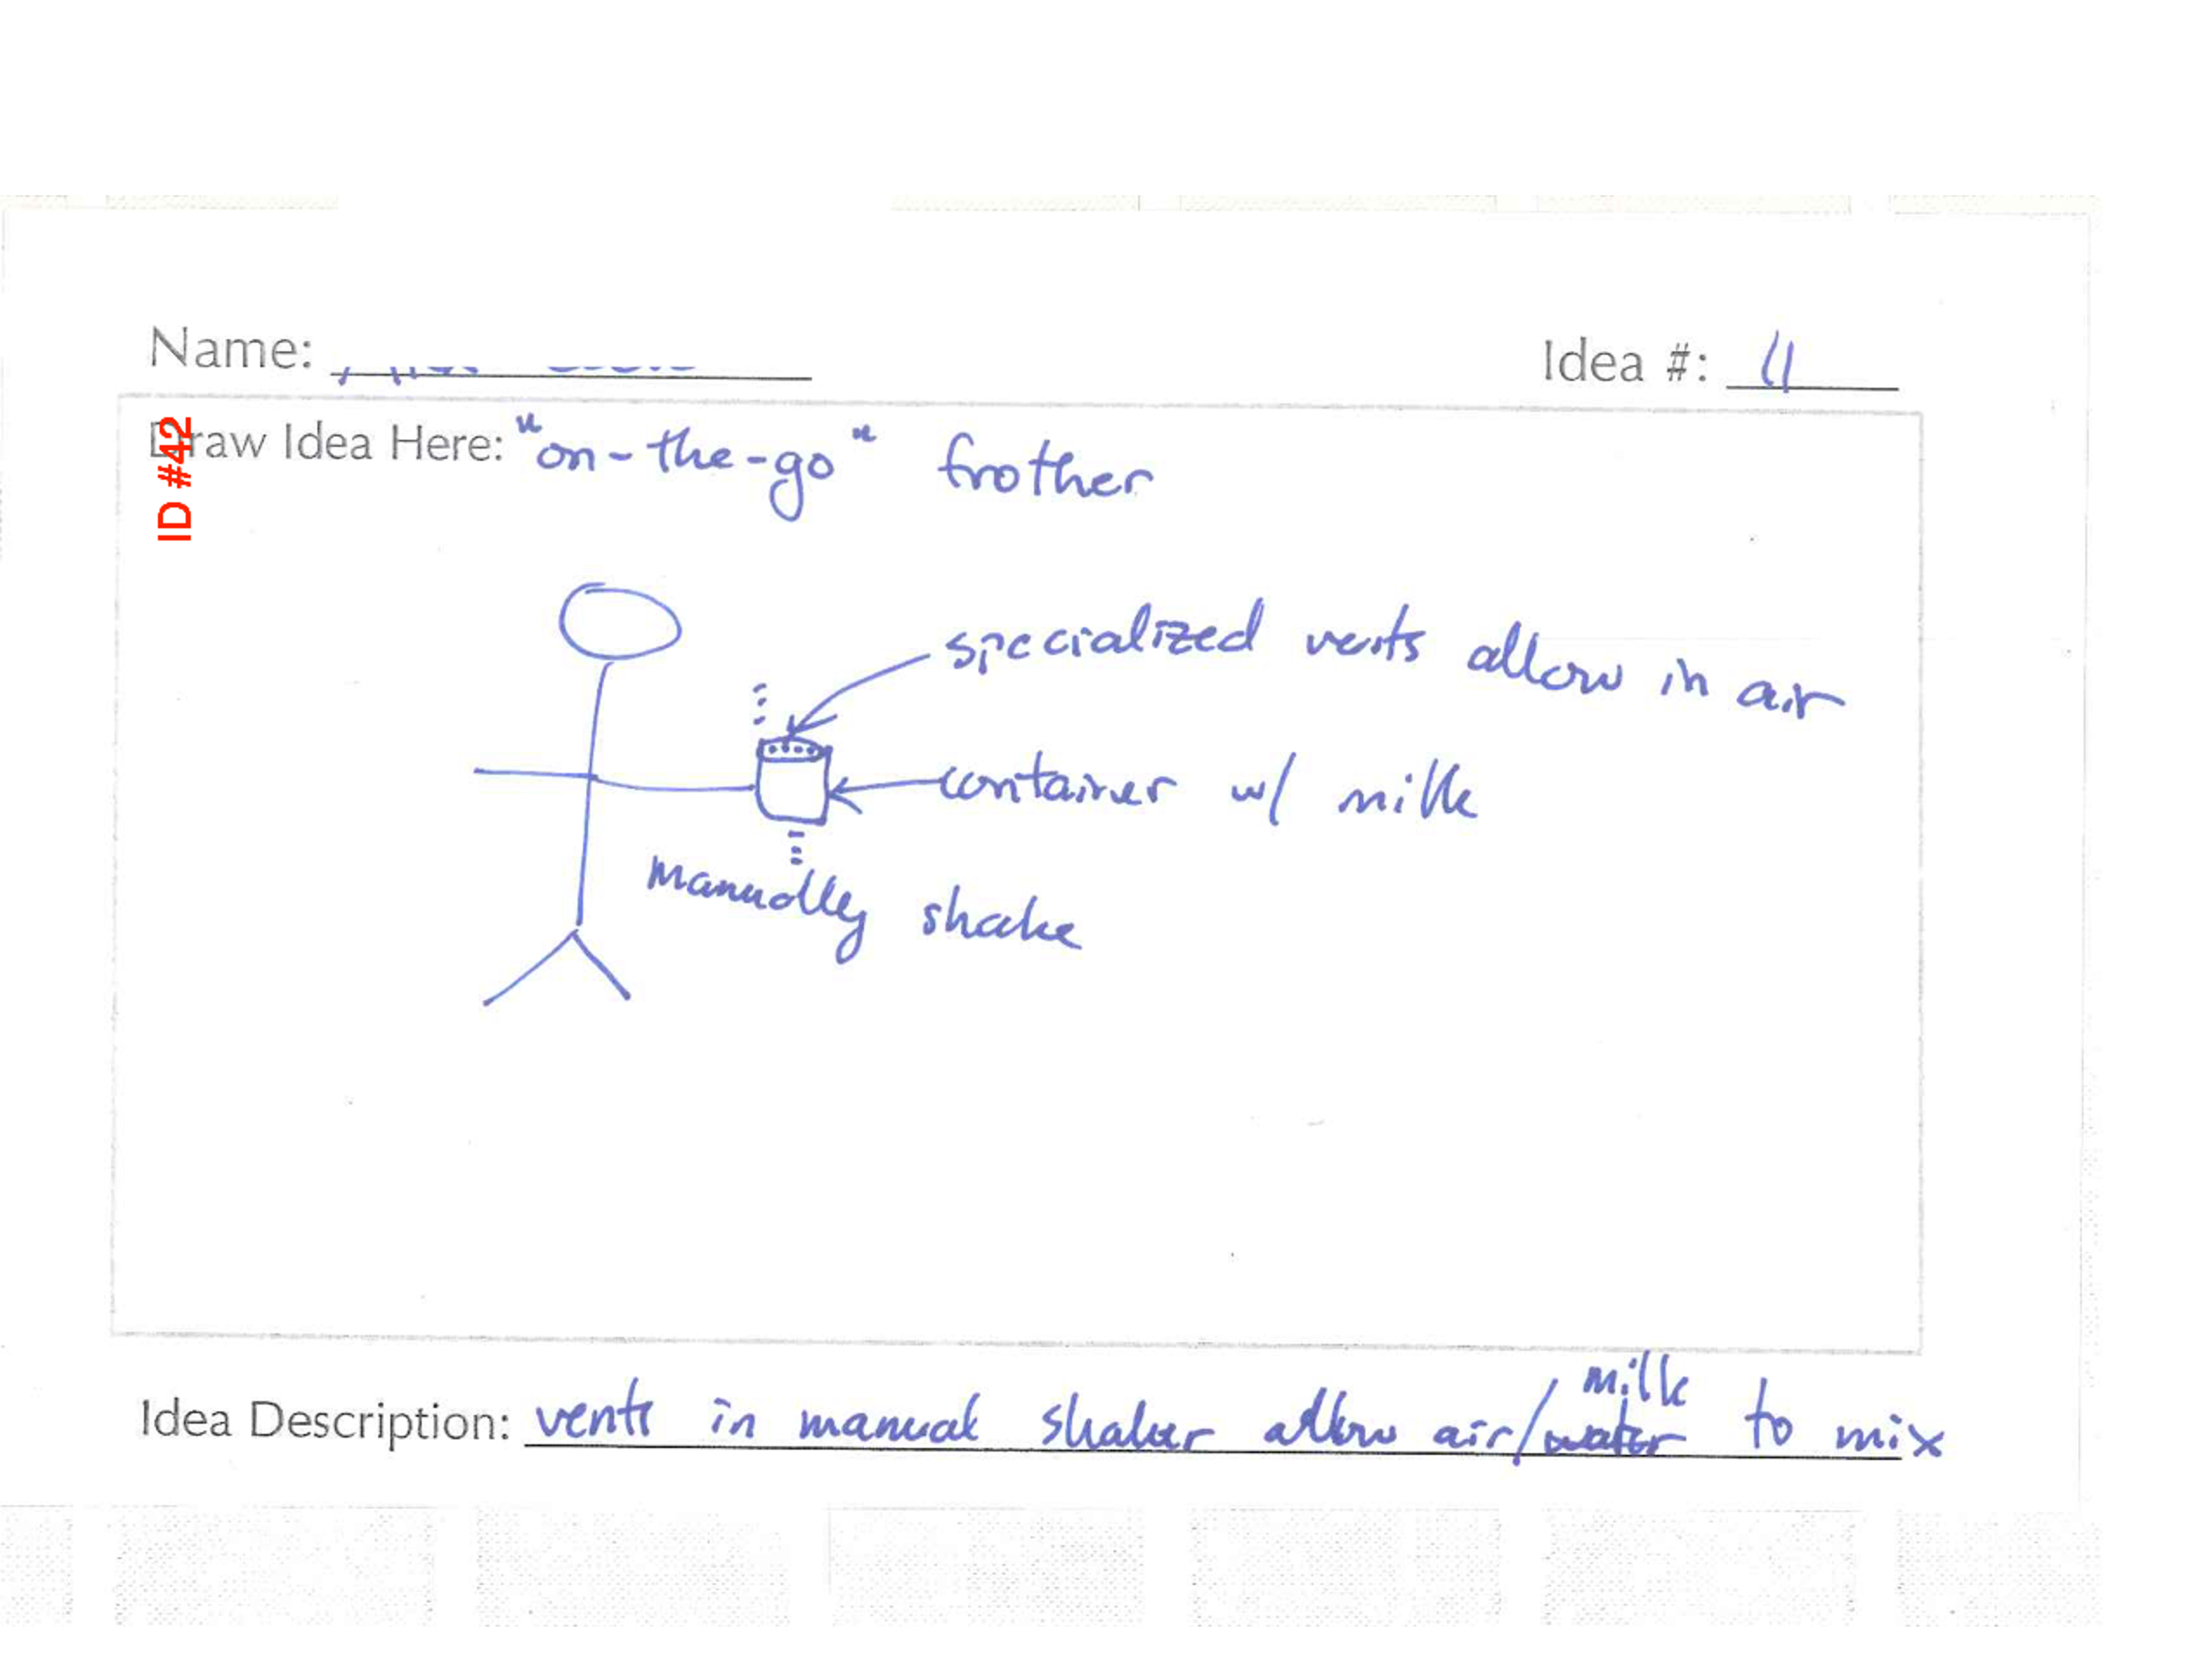 Name:
Idea #: 11
ID #42
Draw Idea Here: "on-the-go" frother
specialized vents allow in air
container w/ milk
manually shake
milk
Idea Description: vents in manual shaker allow air/water to mix